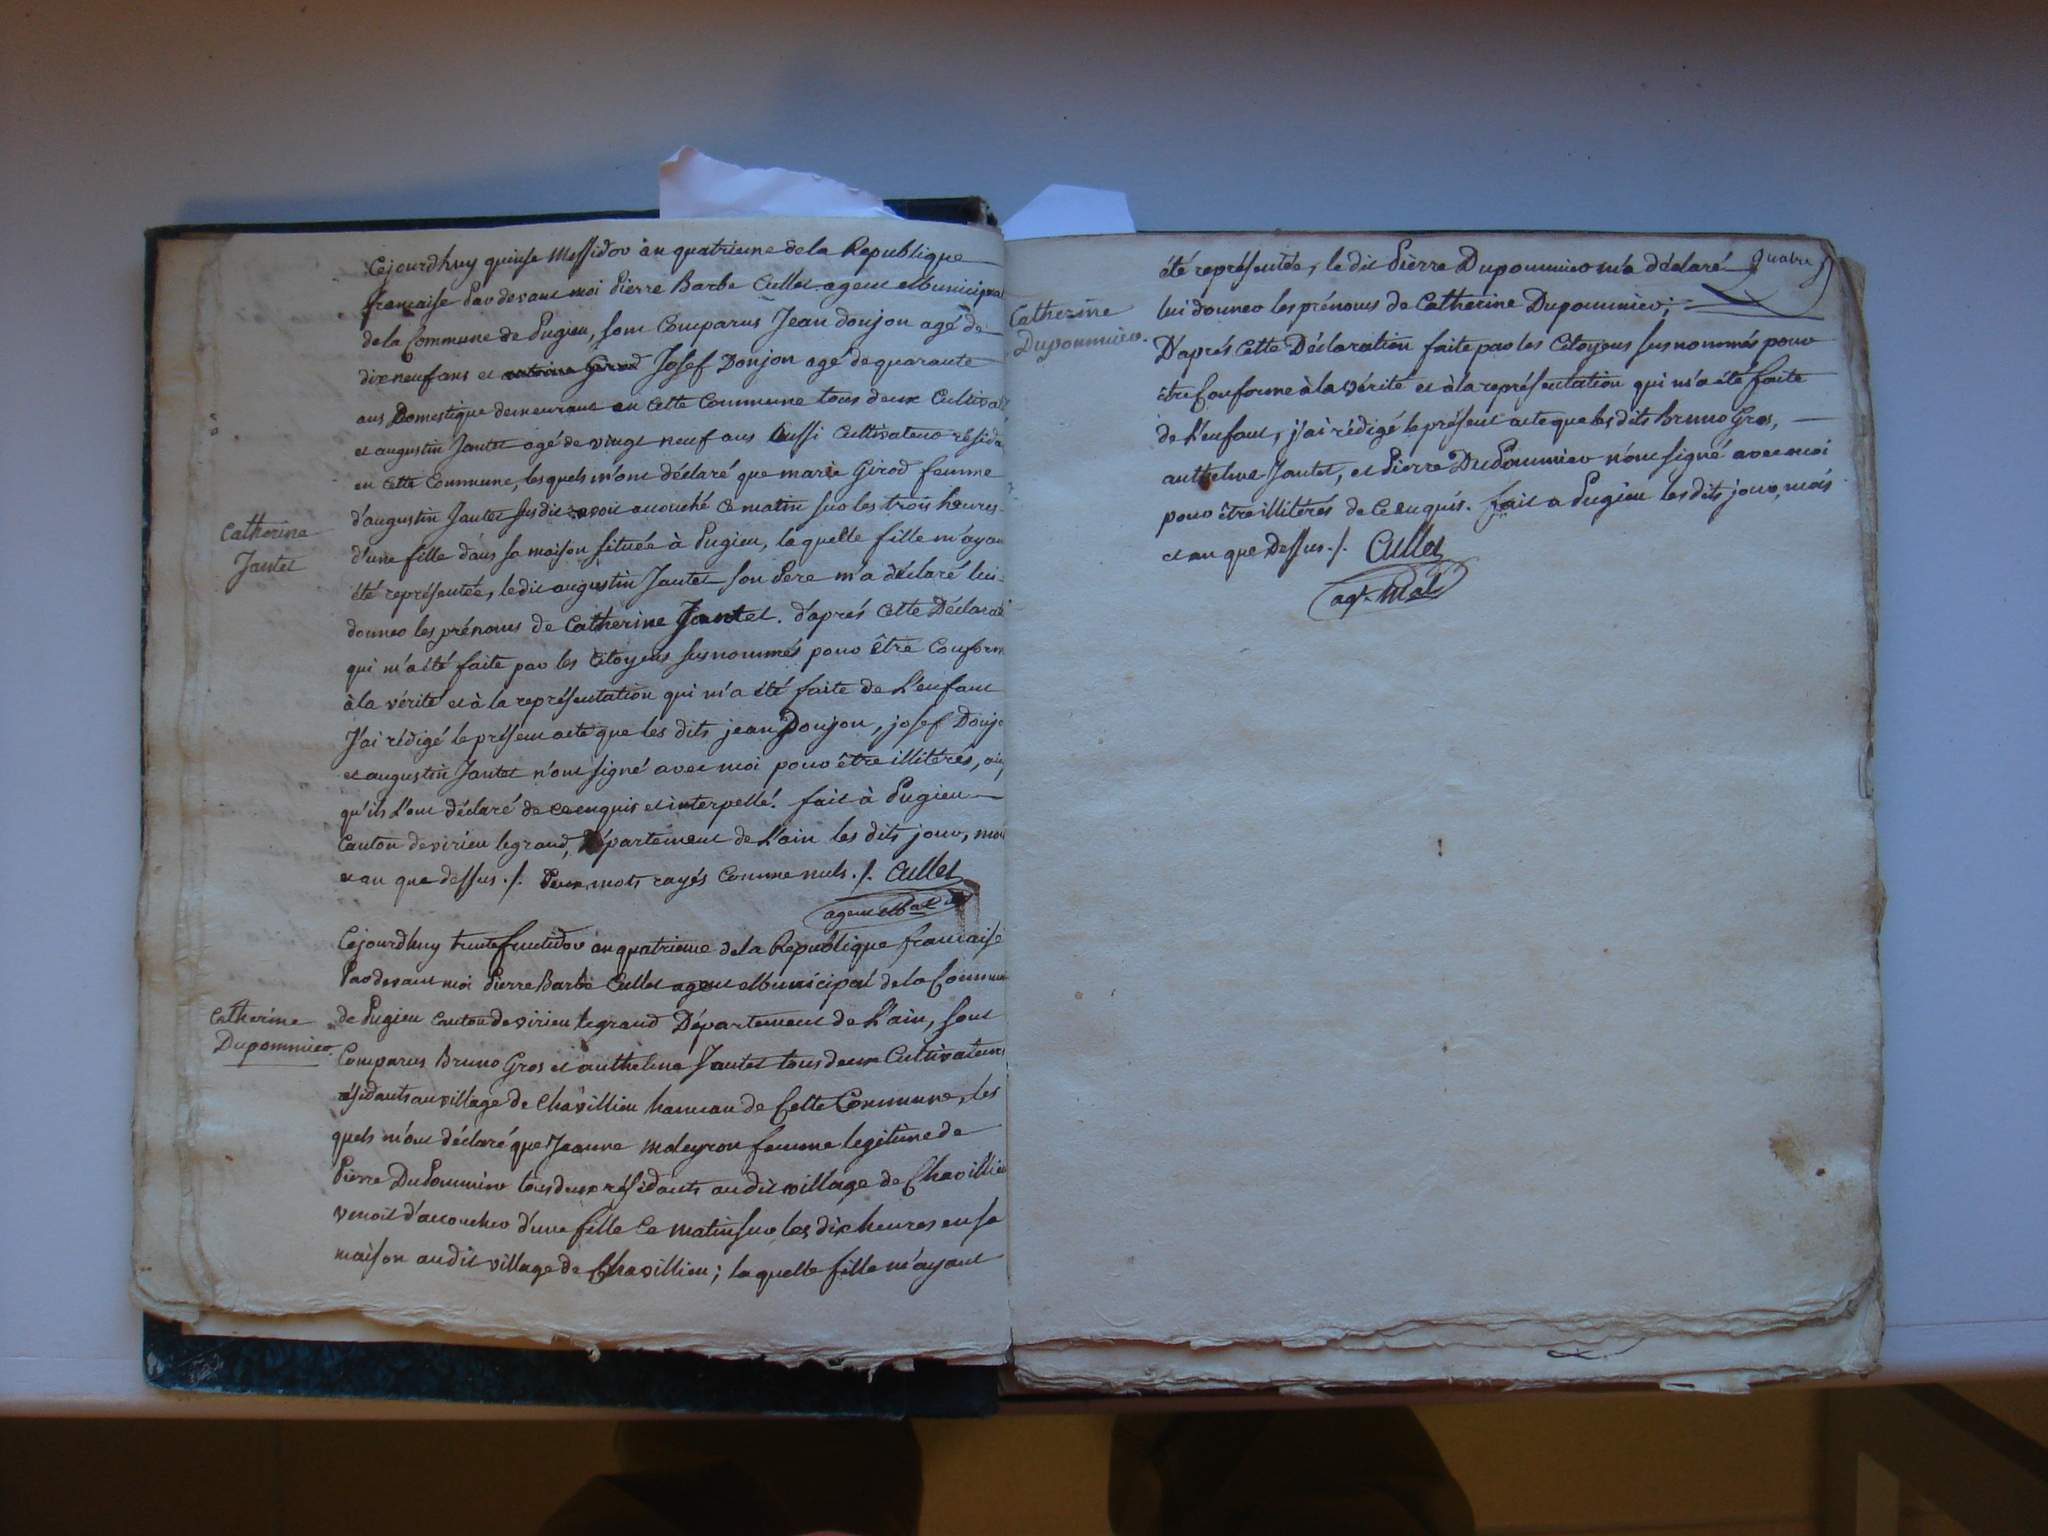 Cejourdhuy quinse Messidor an quatrieme de la Republique
francaise Par devant moi Pierre Barbe Cullet agent Municipal
de la Commune de Pugieu, sont Comparus Jean donjon agé de
dix neuf ans et antoine Girod Josef Donjon agé de quarante
ans Domestique demeurant en Cette Commune tous deux Cultivat
et augustin Jantet agé de vingt neuf ans aussi Cultivateur résida
en Cette Commune, lesquels m'ont déclaré que marie Girod femme
d'augustin Jantet susdit avoit accouché Ce matin sur les trois heures
d'une fille dans sa maison située à Pugieu, laquelle fille m'ayan
été représentée, ledit augustin Jantet son Pere m'a déclaré lui
donner les prénoms de Catherine Jantet. d'aprés Cette Déclarati
qui m'a été faite par les Citoyens susnommés pour être Conform
à la vérité et à la représentation qui m'a été faite de L'enfant
J'ai rédigé le présent acte que les dits jean Donjon, josef Donjo
et augustin Jantet n'ont signé avec moi pour être illitérés, ain
qu'ils L'ont déclaré de ce enquis et interpellé. fait à Pugieu
Canton de virieu legrand, Département de L'ain les dits jour, moi
et an que dessus ./. Deux mots rayés Comme nuls ./. Cullet
agent M.al
Catherine
Jantet
Cejourdhuy trente fructidor an quatrieme de la Republique francaise
Pardevant moi Pierre Barbe Cullet agent Municipal de la Commun
de Pugieu Canton de virieu legrand Département de L'ain, sont
Comparus Bruno Gros et anthelme Jantet tous deux Cultivateurs
résidants au village de Chavillieu hameau de Cette Commune, les
quels m'ont déclaré que Jeanne moleyron femme legitime de
Pierre DuPommier tous deux résidants audit village de Chavillieu
venoit d'accoucher d'une fille Ce matin sur les dix heures en sa
maison audit village de Chavillieu; laquelle fille m'ayant
Catherine
Dupommier.
quatre
été représentée, le dit Pierre Dupommier m'a déclaré
lui donner les prénoms de Catherine Dupommier;
D'aprés Cette Déclaration faite par les Citoyens susnommés pour
être Conforme à la vérité et à la représentation qui m'a été faite
de L'enfant, j'ai rédigé le présent acte que les dits Bruno Gros,
anthelme Jantet, et Pierre DuPommier n'ont signé avec moi
pour être illitérés de Ce enquis. fait a Pugieu les dits jour, mois
et an que Dessus ./. Cullet
agt. M.al
Catherine
Dupommier.